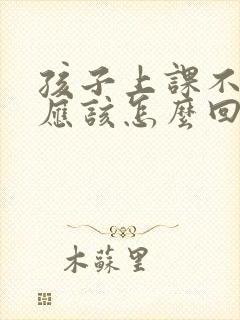 孩子上課不
應該怎麼回
木蘇里